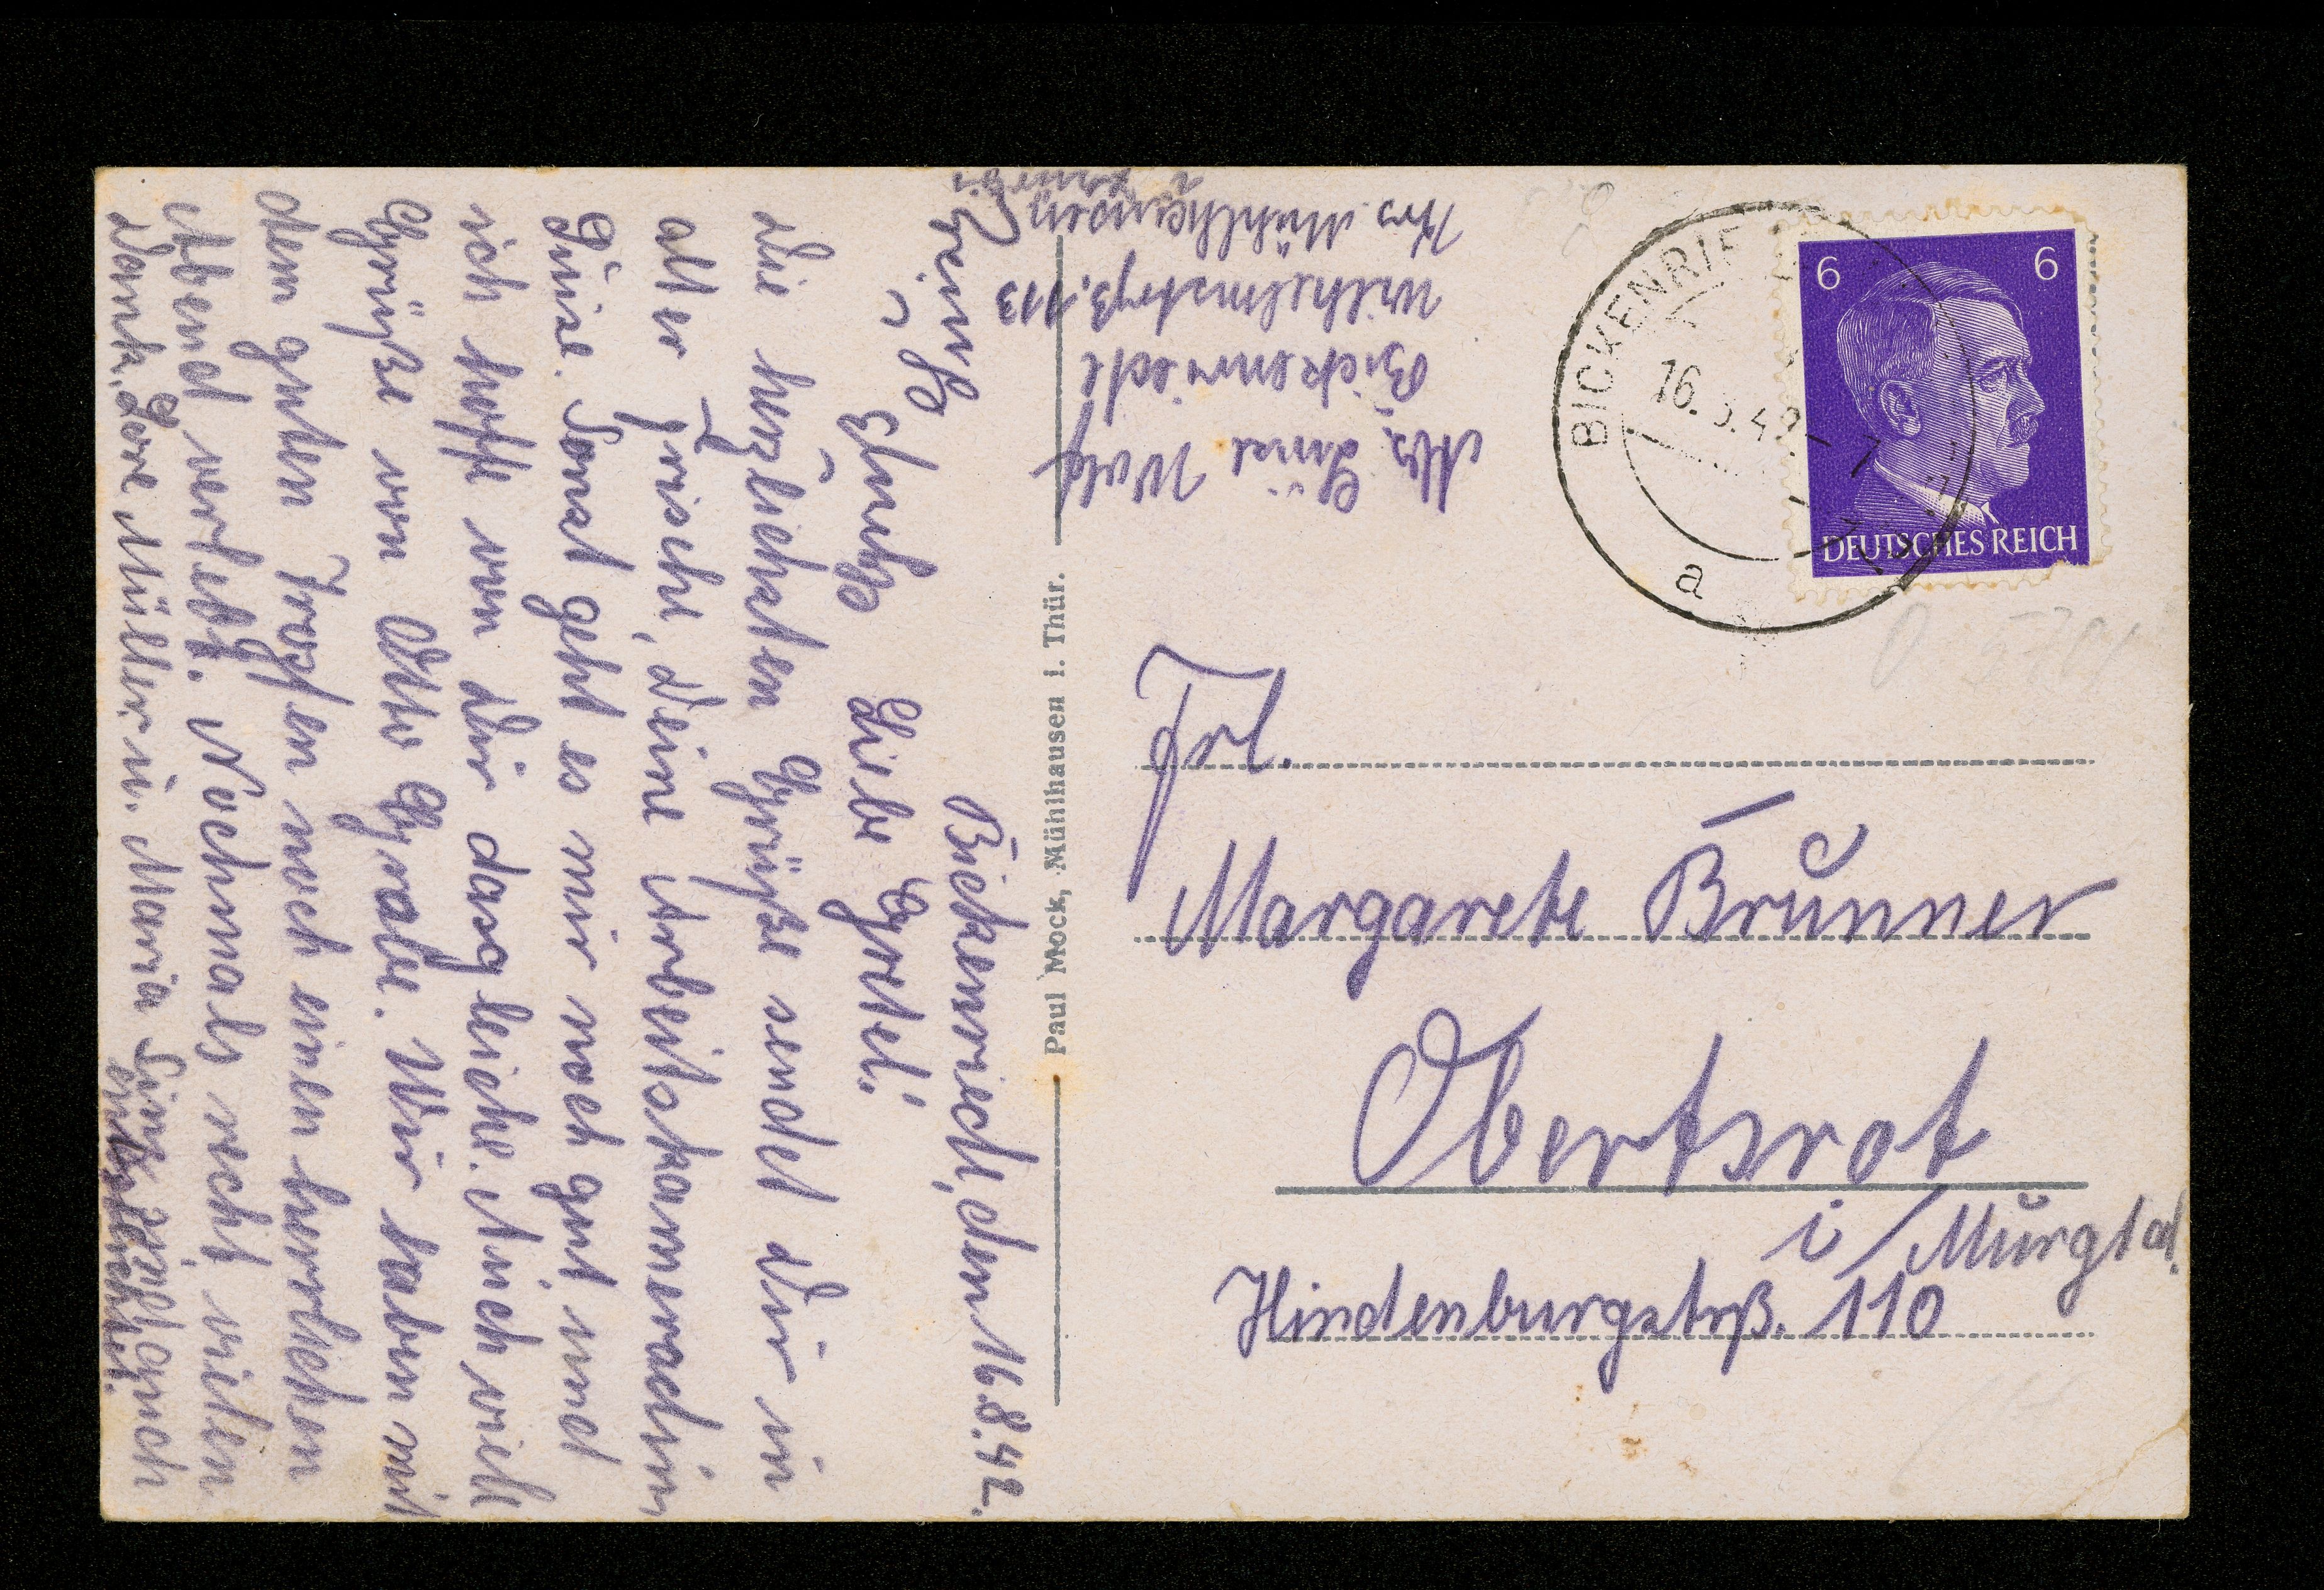 Bickenriede, den 16.8.42.
Liebe Gretel!
Die herzlichsten Grüße sendet dir in
alter Frische, deine Arbeitskameradin
Luise. Sonst geht es mir noch gut, und
ich hoffe von dir dasgleiche. Auch viele
Grüße von Otto Grabe. Wir haben mit
dem guten Tropfen noch einen herrlichen
Abend verlebt. Nochmals recht vielen
Dank. Lore Müller u. Maria Sink
Paul Mock, Mühlhausen i. Thür.
Abs. Luise Wolf
Bickenriede
Wilhelmstrß. 113
Krs. Mühlhausen
BICKENRIE
16.8.42-7
a
6 6
DEUTSCHES REICH
Frl.
Margarete Brunner
Obertsrot
i/Murgtal.
Hindenburgstrß. 110